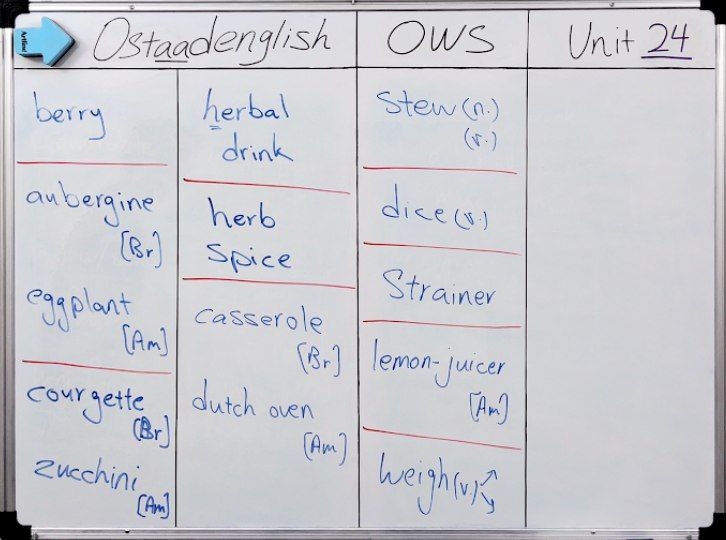 Artline
Ostaadenglish
OWS
Unit 24
berry
aubergine
[Br]
eggplant
[Am]
courgette
[Br]
zucchini
[Am]
herbal
drink
herb
spice
casserole
[Br]
dutch oven
[Am]
stew (n.)
(v.)
dice (v.)
Strainer
lemon-juicer
[Am]
weigh (v.)